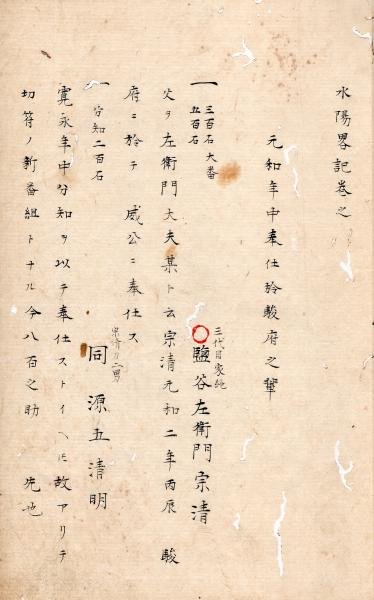 水陽畧記巻之
元和年中奉仕於駿府之輩
一 三百石大番
五百石
三代目家絶
鹽谷左衛門宗清
父ヲ左衛門大夫某ト云宗清元和二年丙辰駿
府ニ於テ威公ニ奉仕ス
一 分知二百石
宗清カ二男
同源五清明
寛永年中分知ヲ以テ奉仕ストイヘ𪜈故アリテ
切符ノ新番組トナル今八百之助先也